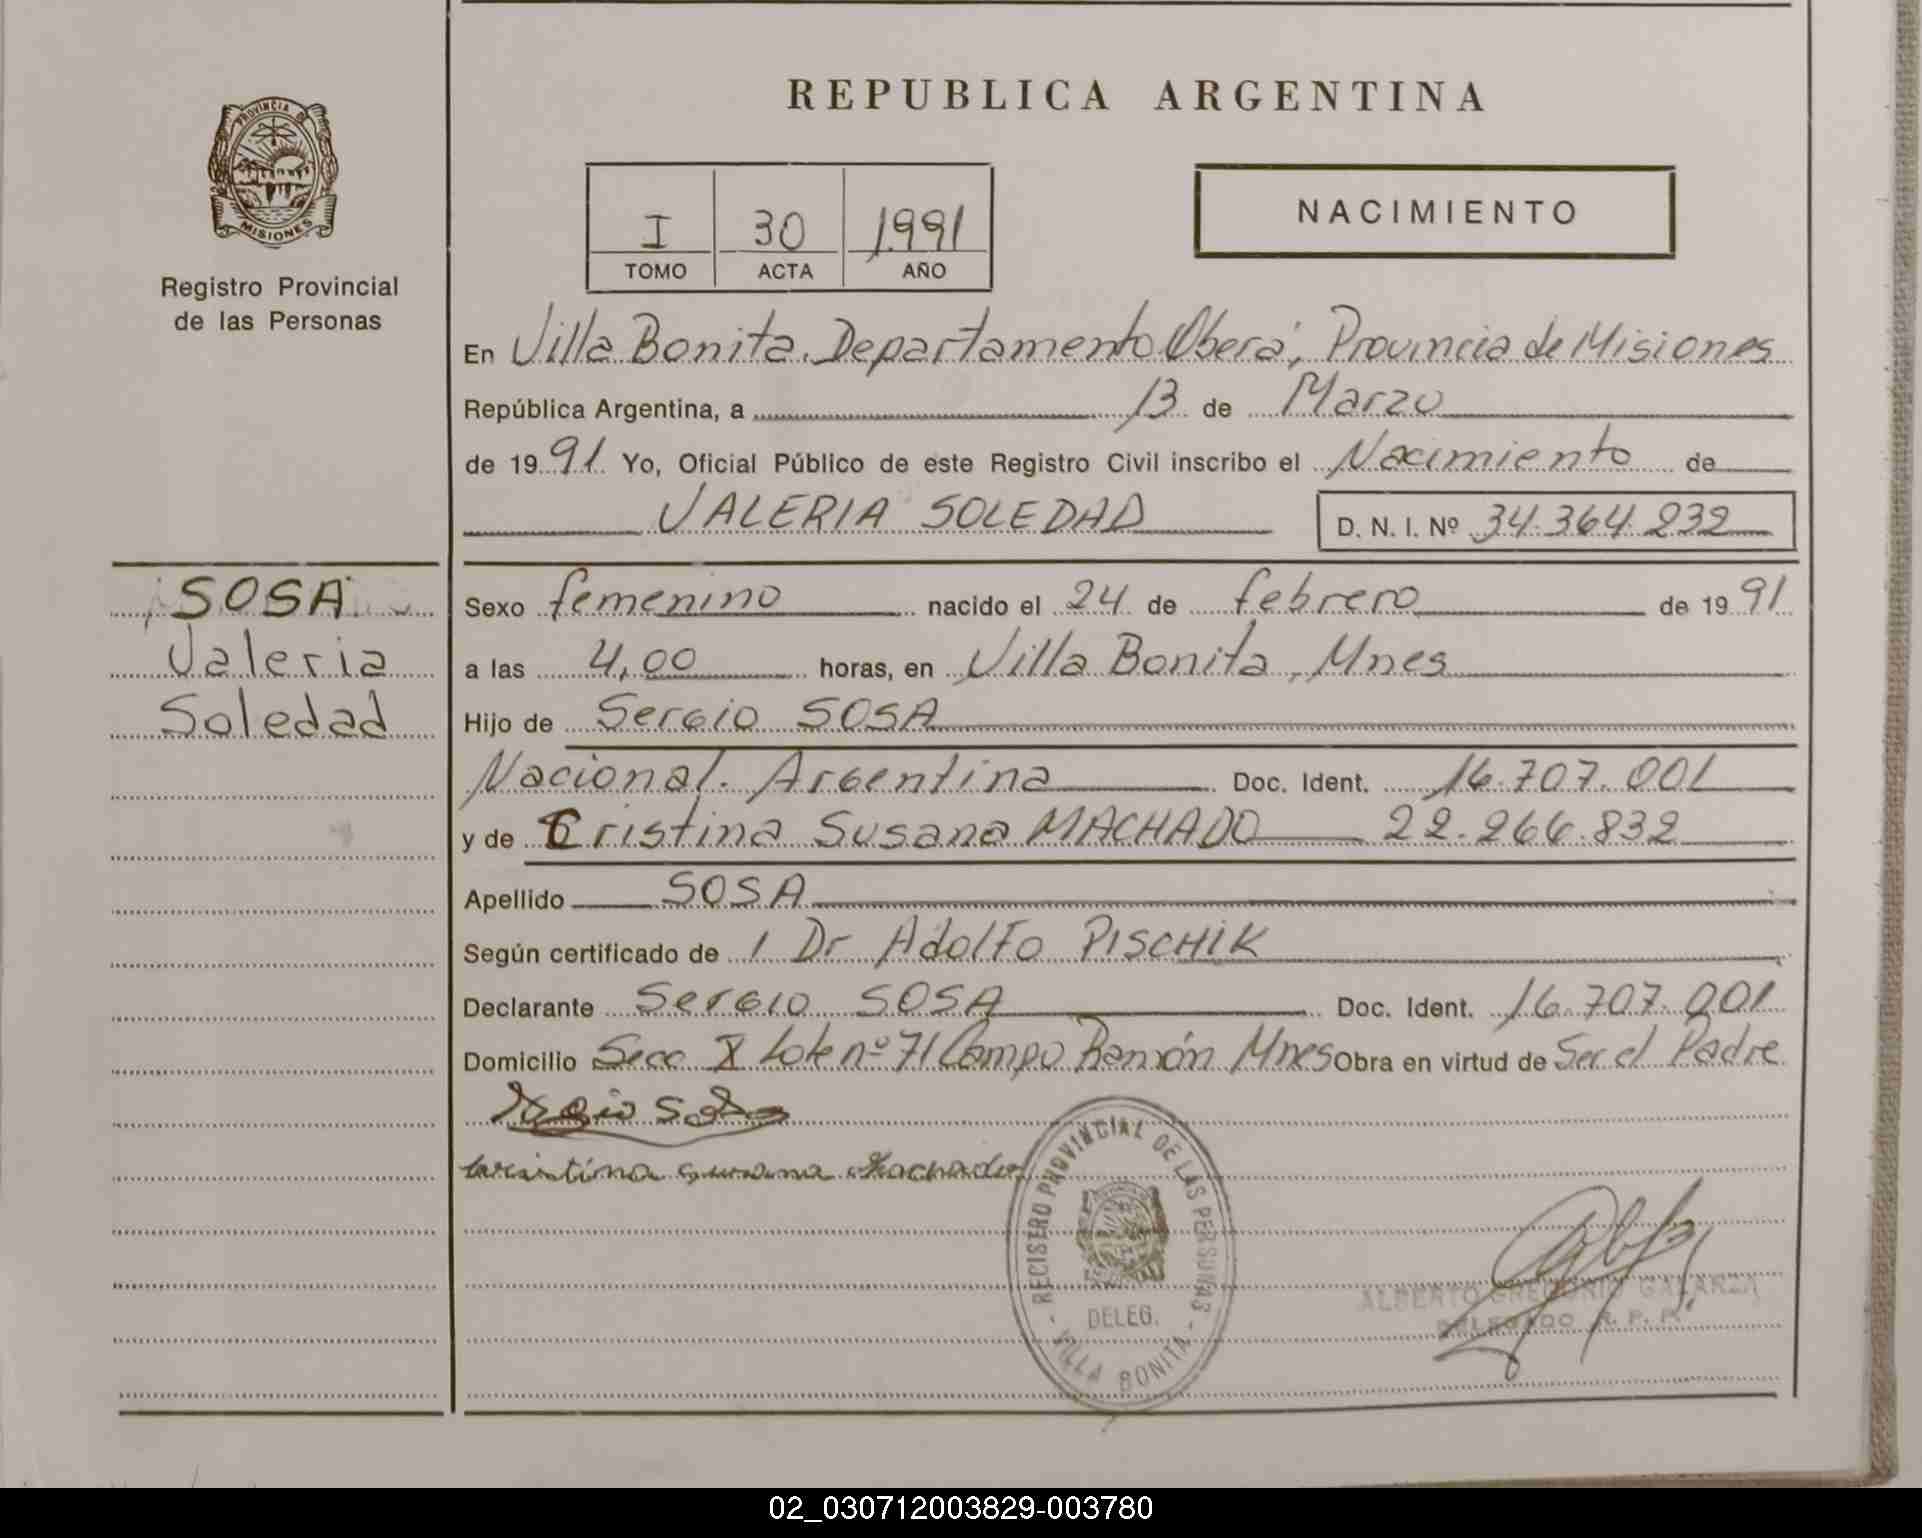 REPUBLICA ARGENTINA
PROVINCIA DE
MISIONES
Registro Provincial
de las Personas
I 30 1991
TOMO ACTA AÑO
NACIMIENTO
En Villa Bonita. Departamento Oberá, Provincia de Misiones
República Argentina, a 13 de Marzo
de 1991 Yo, Oficial Público de este Registro Civil inscribo el Nacimiento de
VALERIA SOLEDAD D. N. I. Nº 34.364.232
SOSA
Valeria
Soledad
Sexo femenino nacido el 24 de febrero de 1991
a las 4,00 horas, en Villa Bonita, Mnes
Hijo de Sergio SOSA
Nacional. Argentina Doc. Ident. 16.707.001
y de Cristina Susana MACHADO 22.266.832
Apellido SOSA
Según certificado de 1 Dr Adolfo PISCHIK
Declarante Sergio SOSA Doc. Ident. 16.707.001
Domicilio Secc X Lote nº 71 Campo Ramón Mnes Obra en virtud de Ser el Padre
Sergio Sosa
Cristina Susana Machado
REGISTRO PROVINCIAL DE LAS PERSONAS
DELEG.
- VILLA BONITA -
ALBERTO GREGORIO GALARZA
DELEGADO R. P. P.
02_030712003829-003780